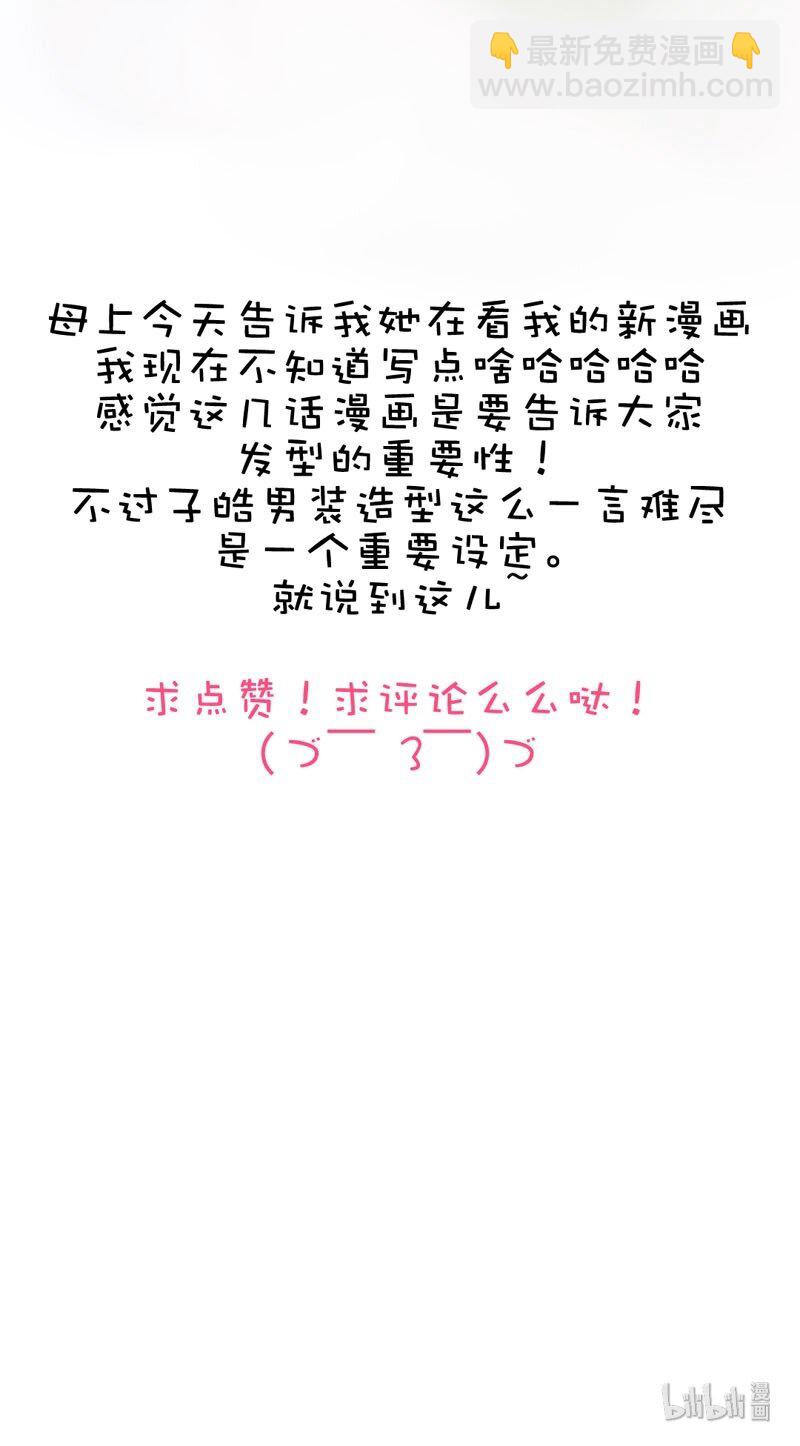 👇最新免费漫画👇
www.baozimh.com
母上今天告诉我她在看我的新漫画
我现在不知道写点啥哈哈哈哈
感觉这几话漫画是要告诉大家
发型的重要性！
不过子皓男装造型这么一言难尽
是一个重要设定。
就说到这儿~
求点赞！求评论么么哒！
(づ￣ 3￣)づ
bilibili漫画